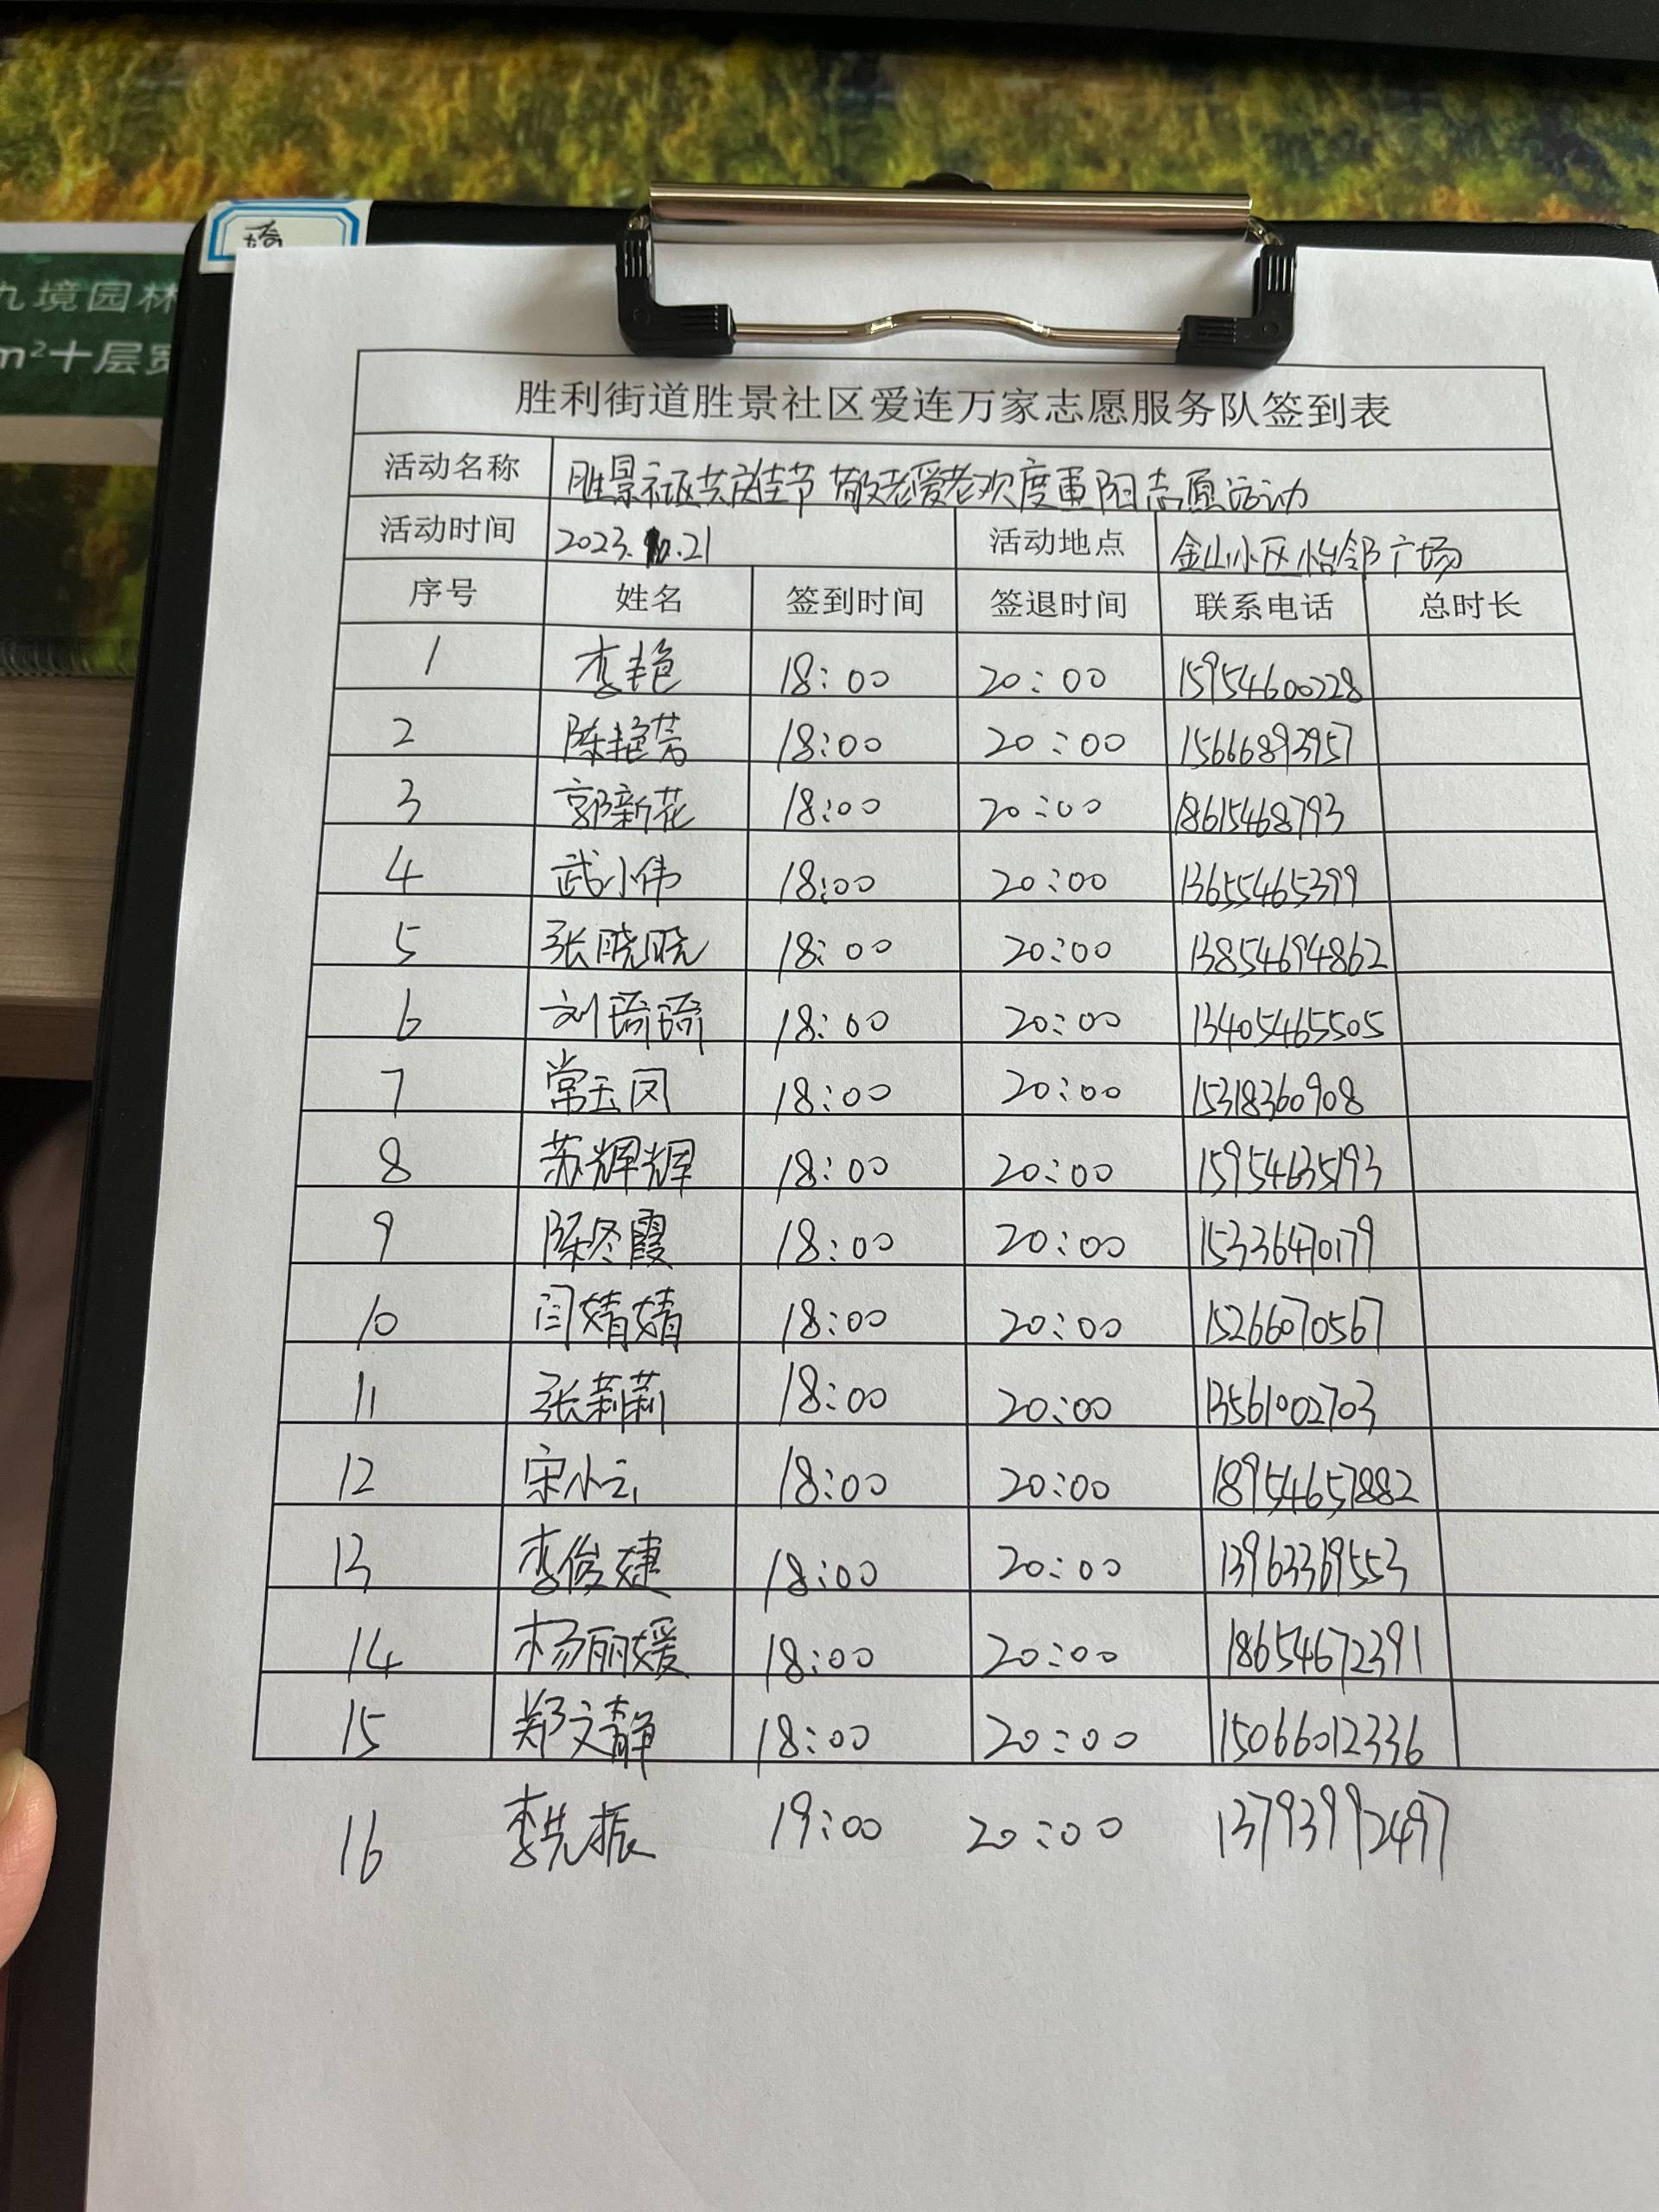 琦
九境园林
m²十层宽
胜利街道胜景社区爱连万家志愿服务队签到表
活动名称 胜景社区共庆佳节 敬老爱老欢度重阳志愿活动
活动时间 2023.10.21 活动地点 金山小区怡邻广场
序号 姓名 签到时间 签退时间 联系电话 总时长
1 李艳 18:00 20:00 15954600228
2 陈艳芳 18:00 20:00 15666893957
3 郭新花 18:00 20:00 18615468793
4 武小伟 18:00 20:00 13655465399
5 张晓晓 18:00 20:00 13854694862
6 刘琦琦 18:00 20:00 13405465505
7 常玉凤 18:00 20:00 15318360908
8 苏辉辉 18:00 20:00 15954635193
9 陈冬霞 18:00 20:00 15336470179
10 闫婧婧 18:00 20:00 15266070567
11 张莉莉 18:00 20:00 13561002703
12 宋小云 18:00 20:00 18954657882
13 李俊婕 18:00 20:00 13963369553
14 杨丽媛 18:00 20:00 18654672391
15 郑文静 18:00 20:00 15066012336
16 李先振 19:00 20:00 13793992497